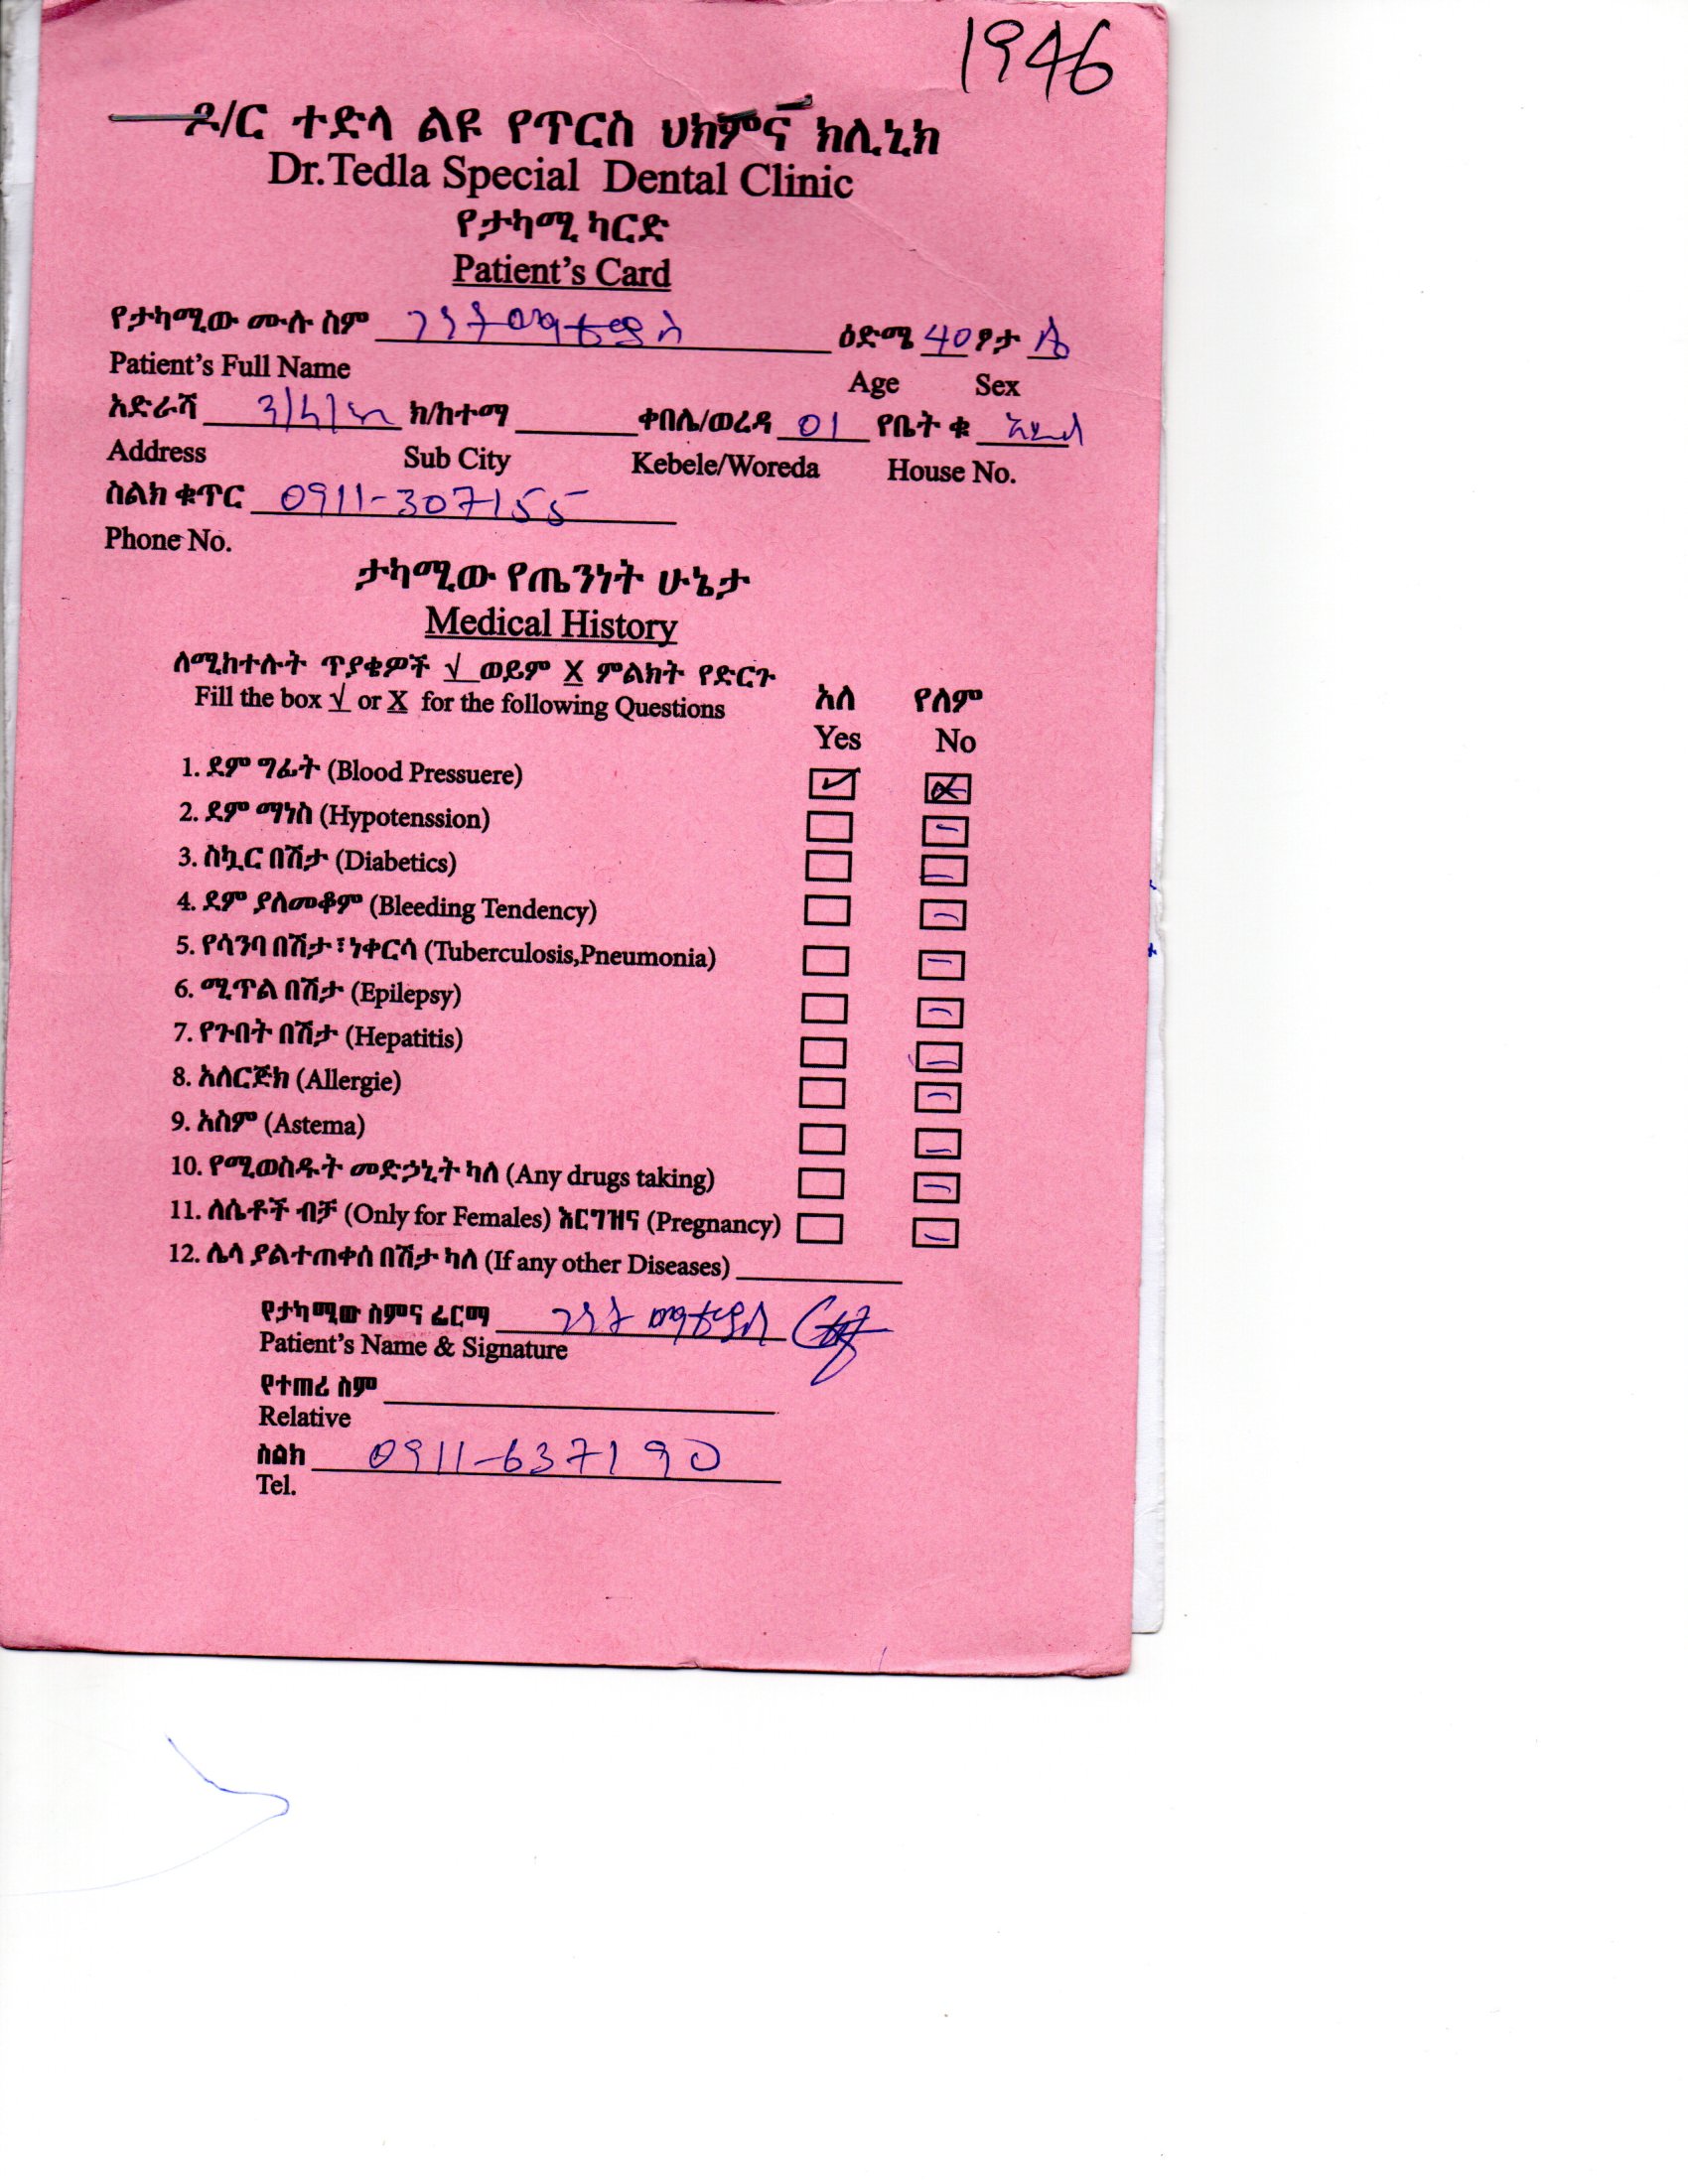 1946
ዶ/ር ተድላ ልዩ የጥርስ ህክምና ክሊኒክ
Dr.Tedla Special Dental Clinic
የታካሚ ካርድ
Patient's Card
የታካሚው ሙሉ ስም ገነት ማቴዎስ ዕድሜ 40 ፆታ ሴ
Patient's Full Name Age Sex
አድራሻ ክ/ከተማ ቀበሌ/ወረዳ 01 የቤት ቁ
Address Sub City Kebele/Woreda House No.
ስልክ ቁጥር 0911-307155
Phone No.
ታካሚው የጤንነት ሁኔታ
Medical History
ለሚከተሉት ጥያቄዎች √ ወይም X ምልክት የድርጉ
Fill the box √ or X for the following Questions
አለ የለም
Yes No
1. ደም ግፊት (Blood Pressuere)
2. ደም ማነስ (Hypotenssion)
3. ስኳር በሽታ (Diabetics)
4. ደም ያለመቆም (Bleeding Tendency)
5. የሳንባ በሽታ፣ነቀርሳ (Tuberculosis,Pneumonia)
6. ሚጥል በሽታ (Epilepsy)
7. የጉበት በሽታ (Hepatitis)
8. አለርጅክ (Allergie)
9. አስም (Astema)
10. የሚወስዱት መድኃኒት ካለ (Any drugs taking)
11. ለሴቶች ብቻ (Only for Females) እርግዝና (Pregnancy)
12. ሌላ ያልተጠቀሰ በሽታ ካለ (If any other Diseases)
የታካሚው ስምና ፊርማ ገነት ማቴዎስ
Patient's Name & Signature
የተጠሪ ስም
Relative
ስልክ 0911-637190
Tel.